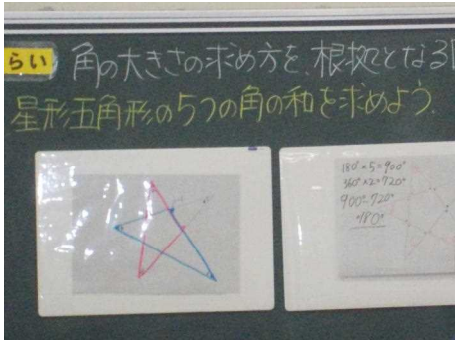 らい 角の大きさの求め方を、根拠となる
星形五角形の5つの角の和を求めよう.
180°×5=900°
360°×2=720°
900°-720°
180°